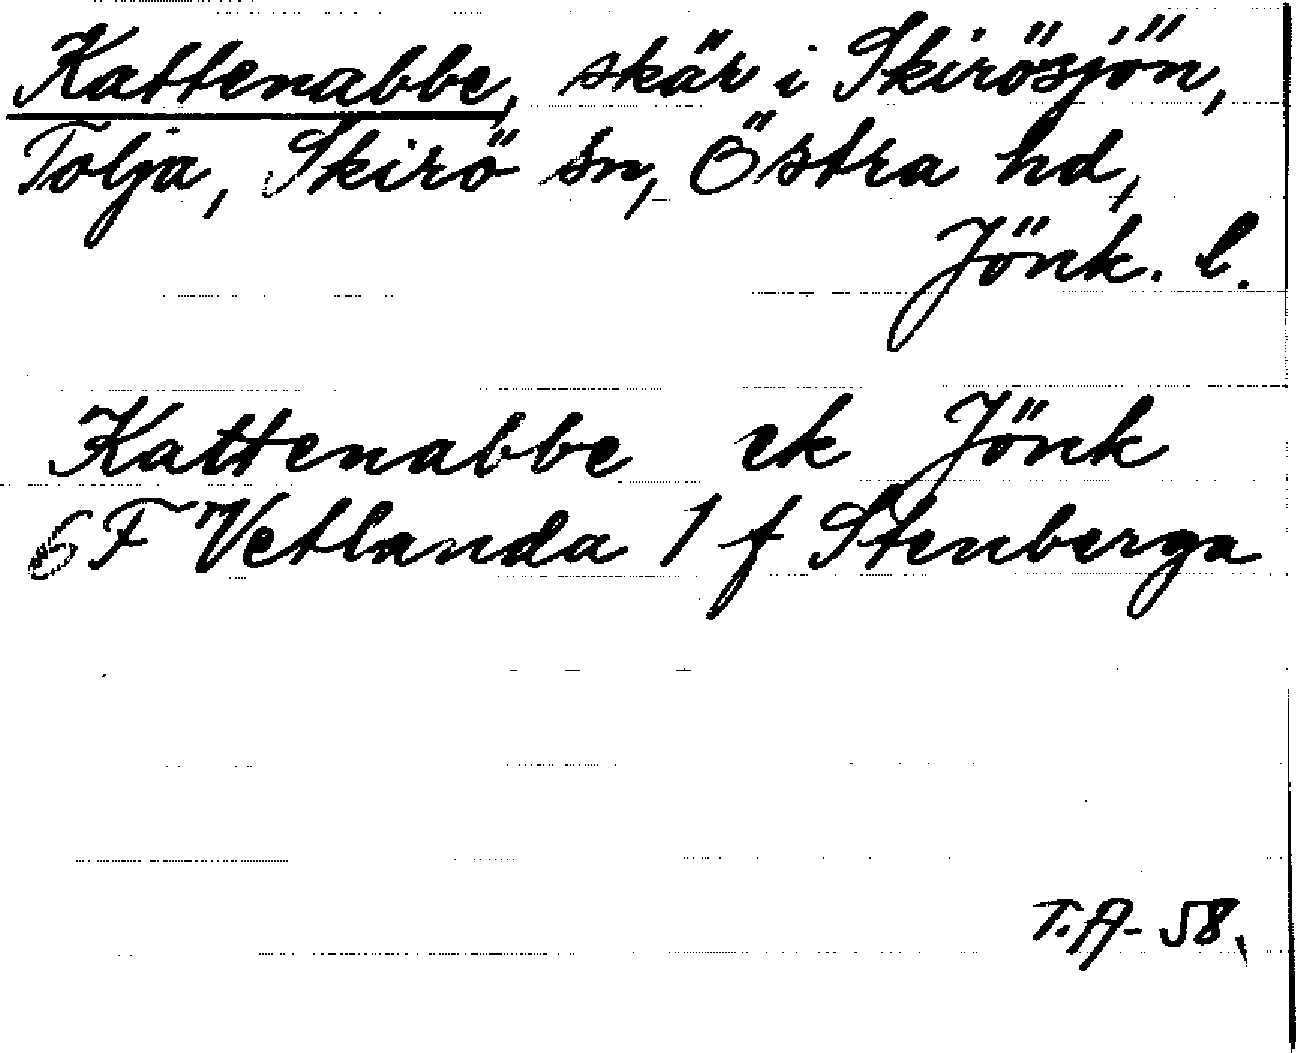 Kattenabbe, skär i Skirösjön,
Tolja, Skirö sn, Östra hd,
Jönk. l.
Kattenabbe ek Jönk
6 F Vetlanda 1 f Stenberga
T.A-58.